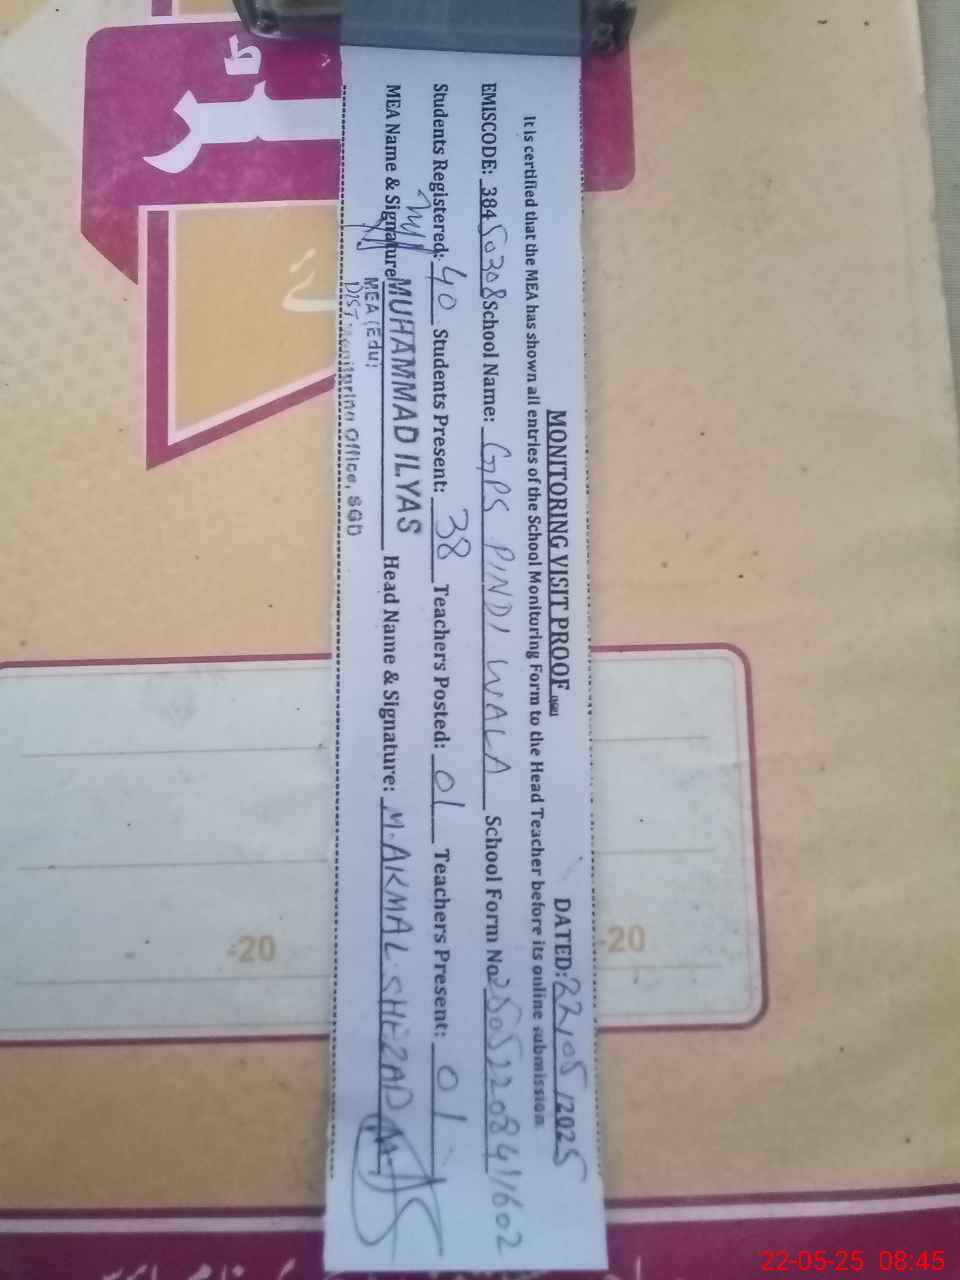 MONITORING VISIT PROOF DATED: 22/05/2025
It is certified that the MEA has shown all entries of the School Monitoring Form to the Head Teacher before its online submission
EMISCODE: 38450308 School Name: GPS PINDI WALA School Form No 25052208411602
Students Registered: 40 Students Present: 38 Teachers Posted: 01 Teachers Present: 01
MEA Name & Signature MUHAMMAD ILYAS Head Name & Signature: M. AKMAL SHEZAD
MEA (Edu)
DIST: Monitoring Office, SGD
-20 -20
22-05-25 08:45